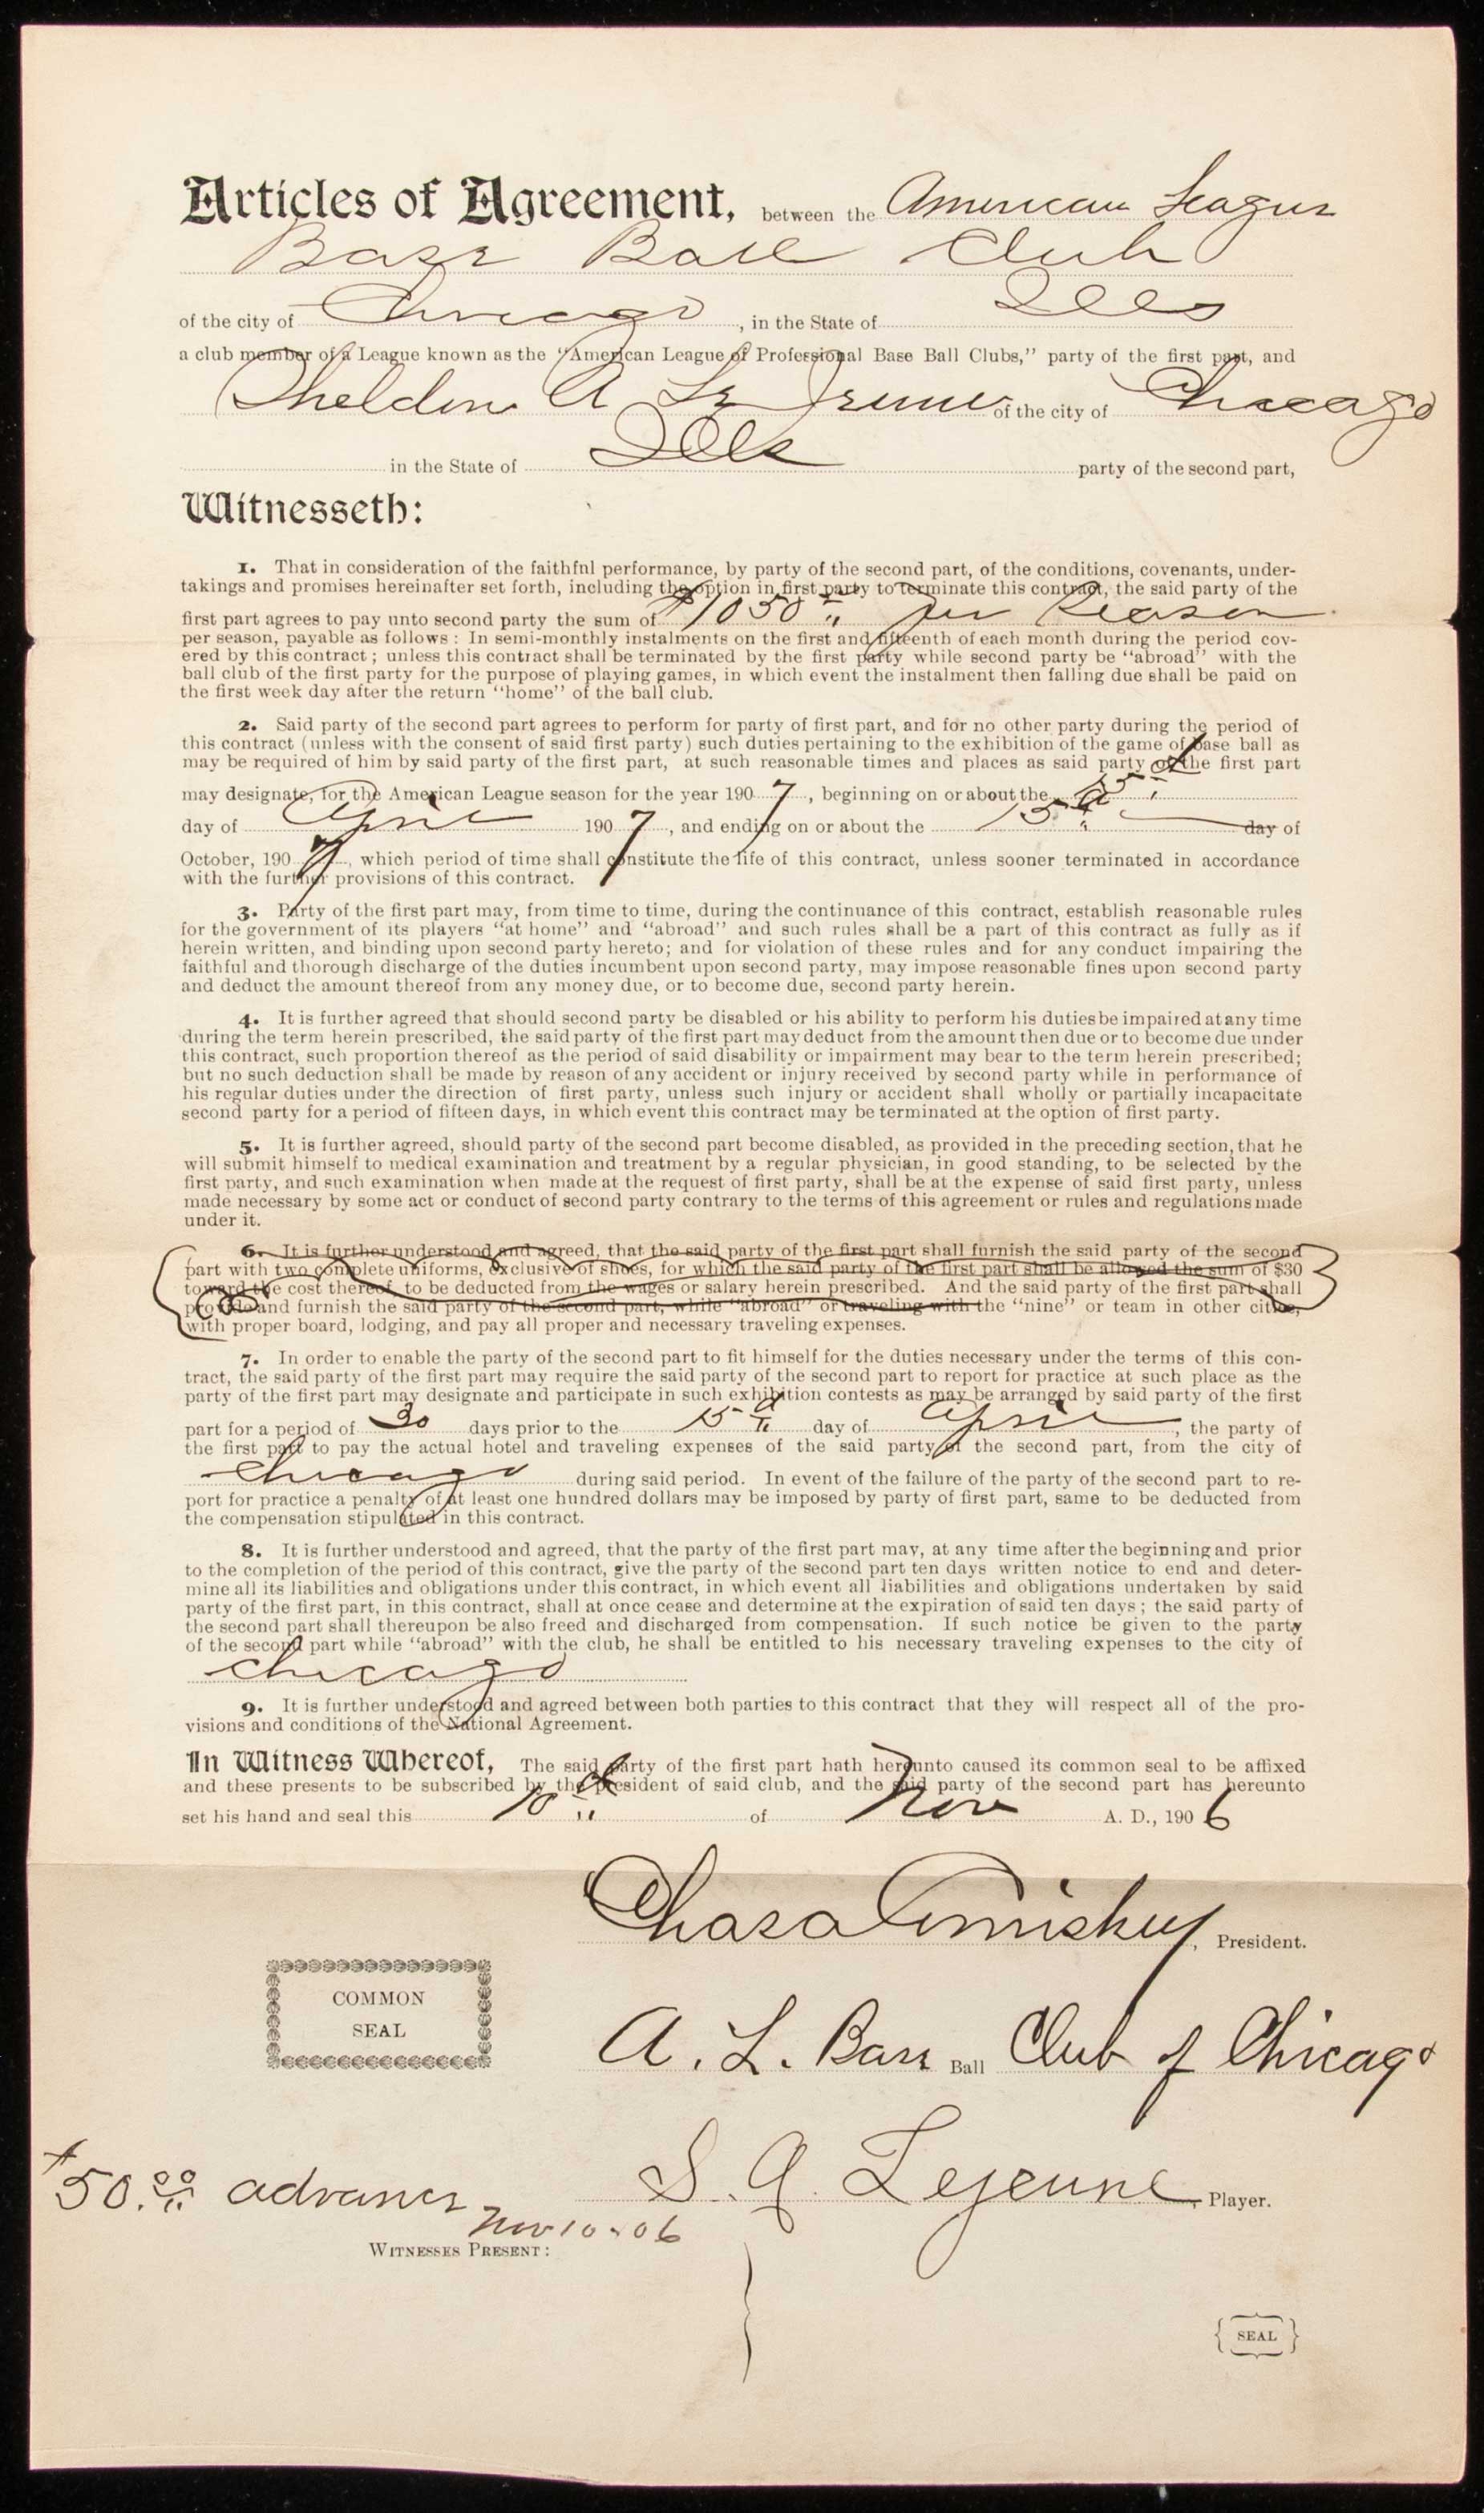 Articles of Agreement, between the American League
Base Ball Club
of the city of Chicago, in the State of Ills
a club member of a League known as the "American League of Professional Base Ball Clubs," party of the first part, and
Sheldon A Le Jeune of the city of Chicago
in the State of Ills party of the second part,
Witnesseth:
1. That in consideration of the faithful performance, by party of the second part, of the conditions, covenants, under-
takings and promises hereinafter set forth, including the option in first party to terminate this contract, the said party of the
first part agrees to pay unto second party the sum of $1050 per Season
per season, payable as follows: In semi-monthly instalments on the first and fifteenth of each month during the period cov-
ered by this contract; unless this contract shall be terminated by the first party while second party be "abroad" with the
ball club of the first party for the purpose of playing games, in which event the instalment then falling due shall be paid on
the first week day after the return "home" of the ball club.
2. Said party of the second part agrees to perform for party of first part, and for no other party during the period of
this contract (unless with the consent of said first party) such duties pertaining to the exhibition of the game of base ball as
may be required of him by said party of the first part, at such reasonable times and places as said party of the first part
may designate, for the American League season for the year 1907, beginning on or about the
day of April 1907, and ending on or about the 15 day of
October, 1907, which period of time shall constitute the life of this contract, unless sooner terminated in accordance
with the further provisions of this contract.
3. Party of the first part may, from time to time, during the continuance of this contract, establish reasonable rules
for the government of its players "at home" and "abroad" and such rules shall be a part of this contract as fully as if
herein written, and binding upon second party hereto; and for violation of these rules and for any conduct impairing the
faithful and thorough discharge of the duties incumbent upon second party, may impose reasonable fines upon second party
and deduct the amount thereof from any money due, or to become due, second party herein.
4. It is further agreed that should second party be disabled or his ability to perform his duties be impaired at any time
during the term herein prescribed, the said party of the first part may deduct from the amount then due or to become due under
this contract, such proportion thereof as the period of said disability or impairment may bear to the term herein prescribed;
but no such deduction shall be made by reason of any accident or injury received by second party while in performance of
his regular duties under the direction of first party, unless such injury or accident shall wholly or partially incapacitate
second party for a period of fifteen days, in which event this contract may be terminated at the option of first party.
5. It is further agreed, should party of the second part become disabled, as provided in the preceding section, that he
will submit himself to medical examination and treatment by a regular physician, in good standing, to be selected by the
first party, and such examination when made at the request of first party, shall be at the expense of said first party, unless
made necessary by some act or conduct of second party contrary to the terms of this agreement or rules and regulations made
under it.
6. It is further understood and agreed, that the said party of the first part shall furnish the said party of the second
part with two complete uniforms, exclusive of shoes, for which the said party of the first part shall be allowed the sum of $30
toward the cost thereof, to be deducted from the wages or salary herein prescribed. And the said party of the first part shall
provide and furnish the said party of the second part, while "abroad" or traveling with the "nine" or team in other cities,
with proper board, lodging, and pay all proper and necessary traveling expenses.
7. In order to enable the party of the second part to fit himself for the duties necessary under the terms of this con-
tract, the said party of the first part may require the said party of the second part to report for practice at such place as the
party of the first part may designate and participate in such exhibition contests as may be arranged by said party of the first
part for a period of 30 days prior to the 15 day of April, the party of
the first part to pay the actual hotel and traveling expenses of the said party of the second part, from the city of
Chicago during said period. In event of the failure of the party of the second part to re-
port for practice a penalty of at least one hundred dollars may be imposed by party of first part, same to be deducted from
the compensation stipulated in this contract.
8. It is further understood and agreed, that the party of the first part may, at any time after the beginning and prior
to the completion of the period of this contract, give the party of the second part ten days written notice to end and deter-
mine all its liabilities and obligations under this contract, in which event all liabilities and obligations undertaken by said
party of the first part, in this contract, shall at once cease and determine at the expiration of said ten days; the said party of
the second part shall thereupon be also freed and discharged from compensation. If such notice be given to the party
of the second part while "abroad" with the club, he shall be entitled to his necessary traveling expenses to the city of
Chicago
9. It is further understood and agreed between both parties to this contract that they will respect all of the pro-
visions and conditions of the National Agreement.
In Witness Whereof, The said party of the first part hath hereunto caused its common seal to be affixed
and these presents to be subscribed by the President of said club, and the said party of the second part has hereunto
set his hand and seal this 10 of Nov A. D., 1906
Chas A Comiskey, President.
COMMON
SEAL
A. L. Base Ball Club of Chicago
S. A. Lejeune, Player.
$50.00 advance
Nov 10-06
WITNESSES PRESENT:
SEAL